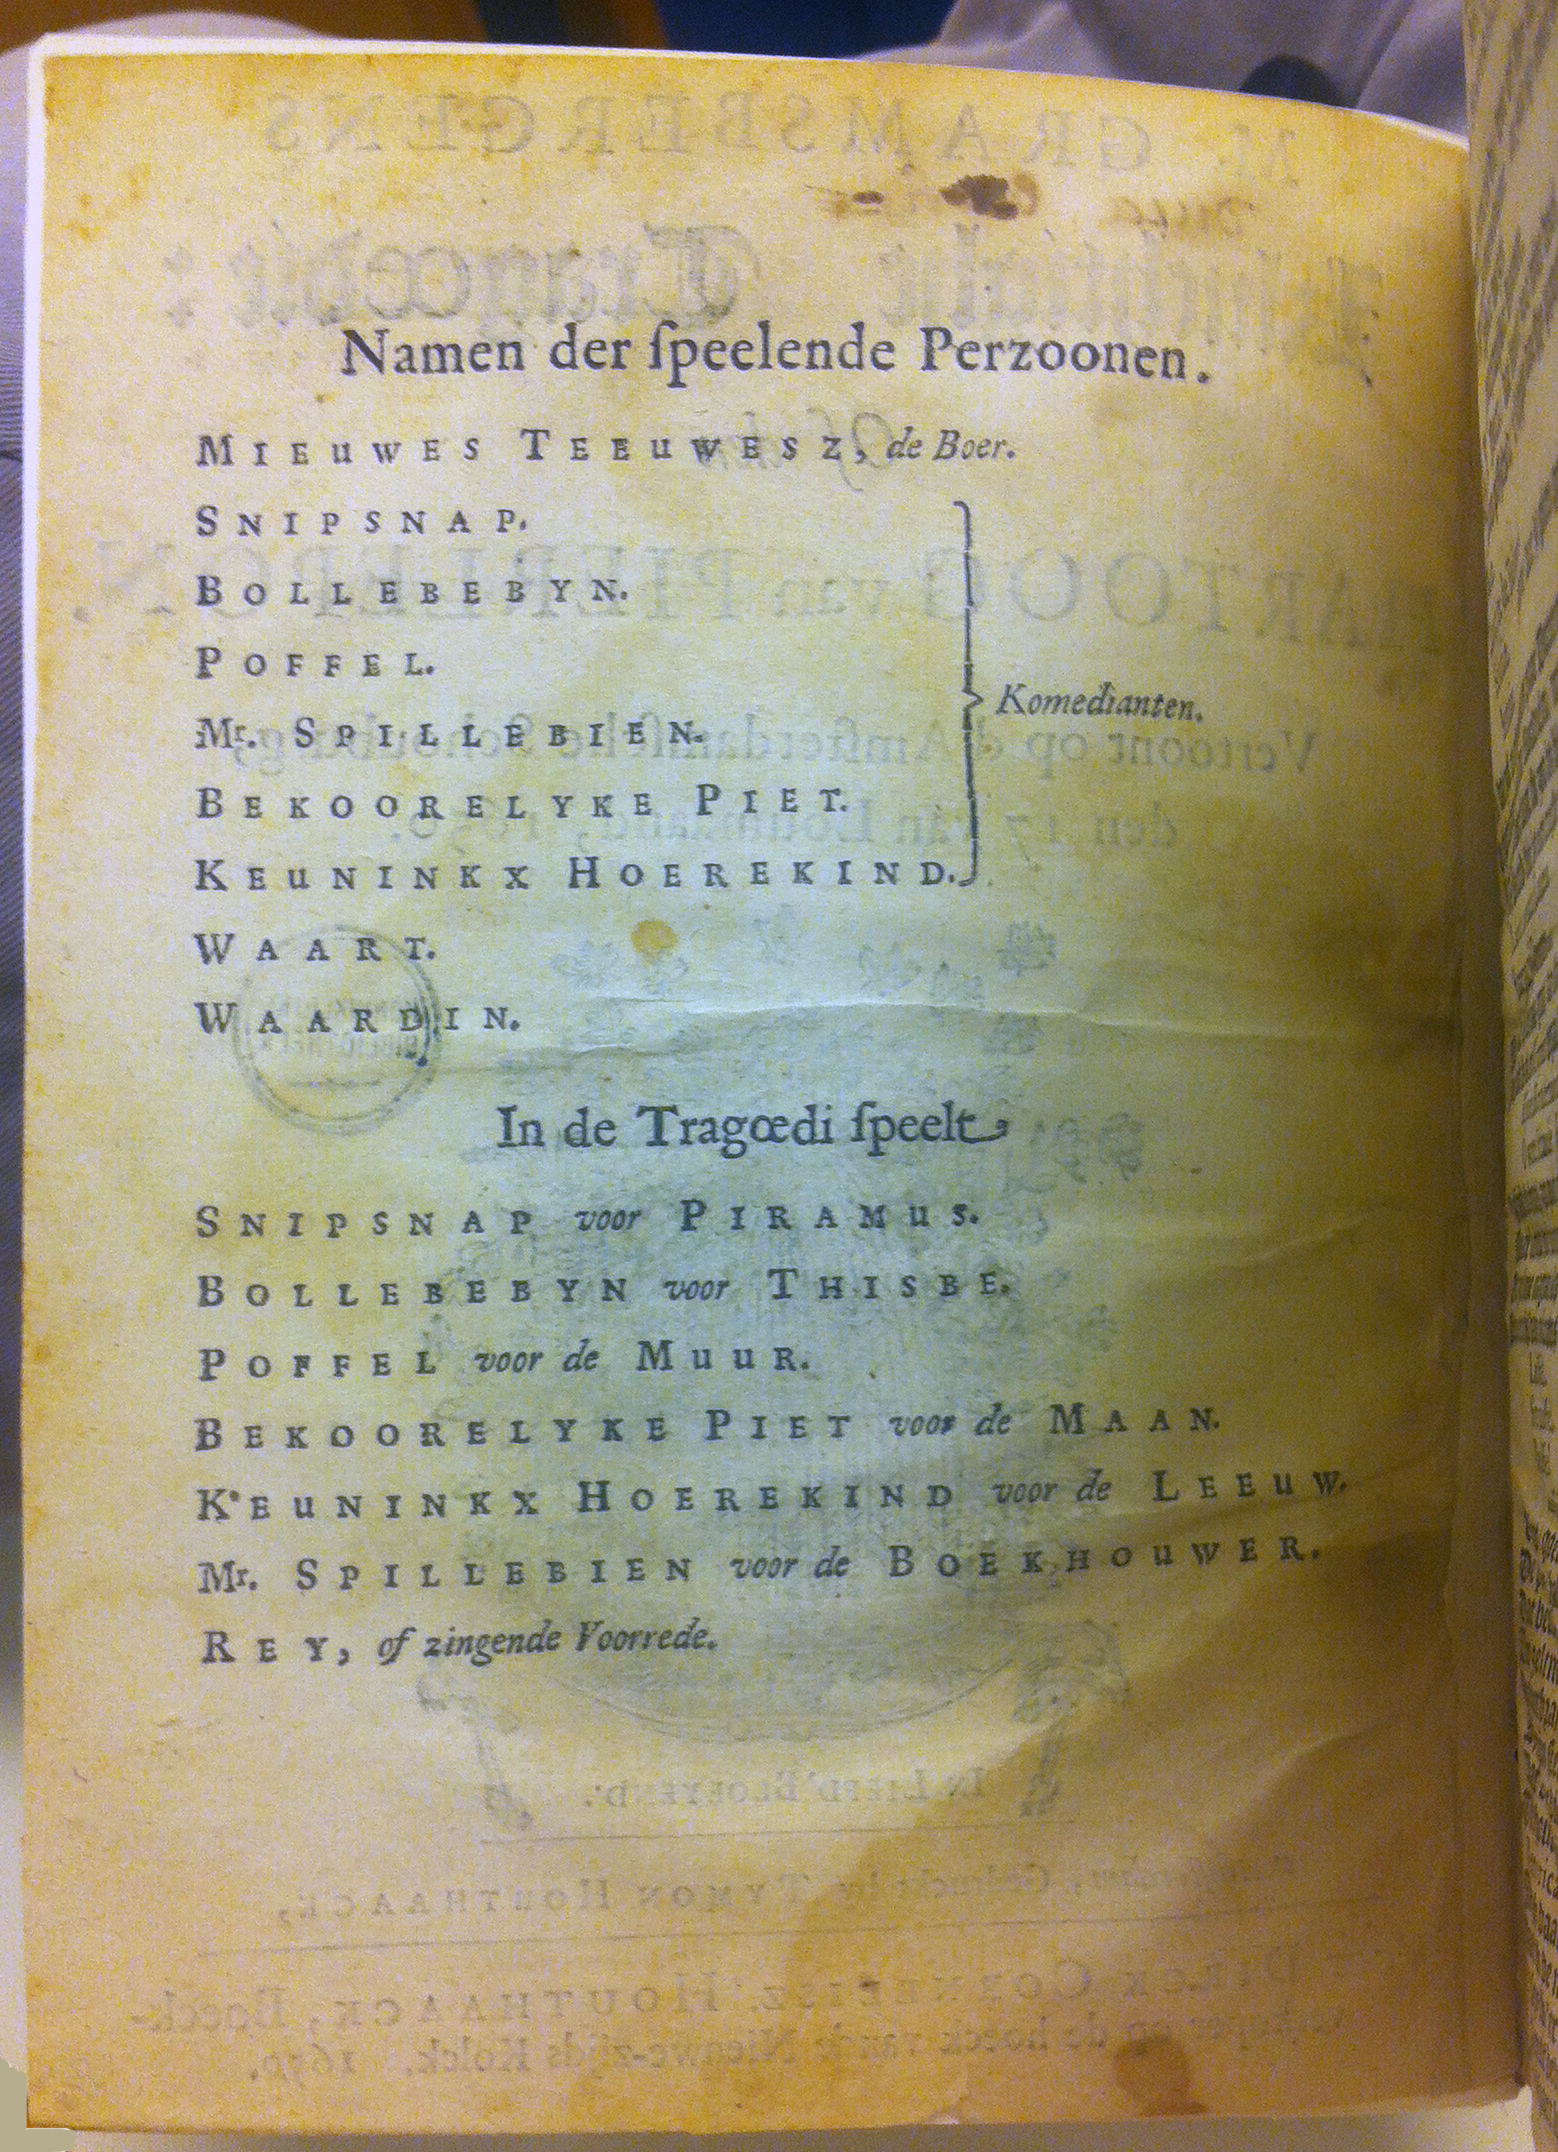 Namen der ſpeelende Perzoonen.
MIEUWES TEEUWESZ, de Boer.
SNIPSNAP.
BOLLEBEBYN.
POFFEL.
Mr. SPILLEBIEN.
Komedianten.
BEKOORELYKE PIET.
KEUNINKX HOEREKIND.
WAART.
WAARDIN.
In de Tragœdi ſpeelt
SNIPSNAP voor PIRAMUS.
BOLLEBEBYN voor THISBE.
POFFEL voor de MUUR.
BEKOORELYKE PIET voor de MAAN.
KEUNINKX HOEREKIND voor de LEEUW.
Mr. SPILLEBIEN voor de BOEKHOUWER.
REY, of zingende Voorrede.